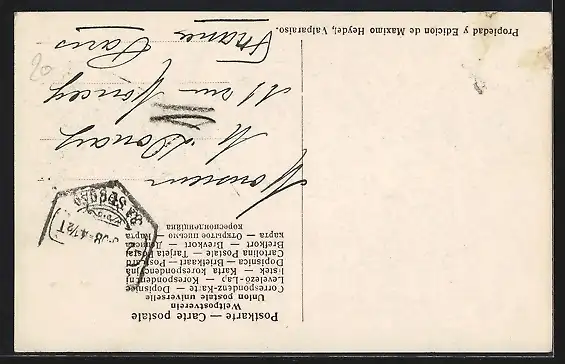 Postkarte — Carte postale
Weltpostverein
Union postale universelle
Correspondenz-Karte — Dopisnice
Levelező-Lap — Korespondenční
lístek — Karta korespondencyjna
Dopisnica — Briefkaart — Postcard
Cartolina Postale — Tarjeta postal
Brefkort — Brevkort — Dopisnica
карта — Открытое письмо — Карта
кореспонденцийна
Monsieur
M. Donay
11 rue Moncey
Paris
France
Propiedad y Edicion de Maximo Heydei, Valparaiso.
20